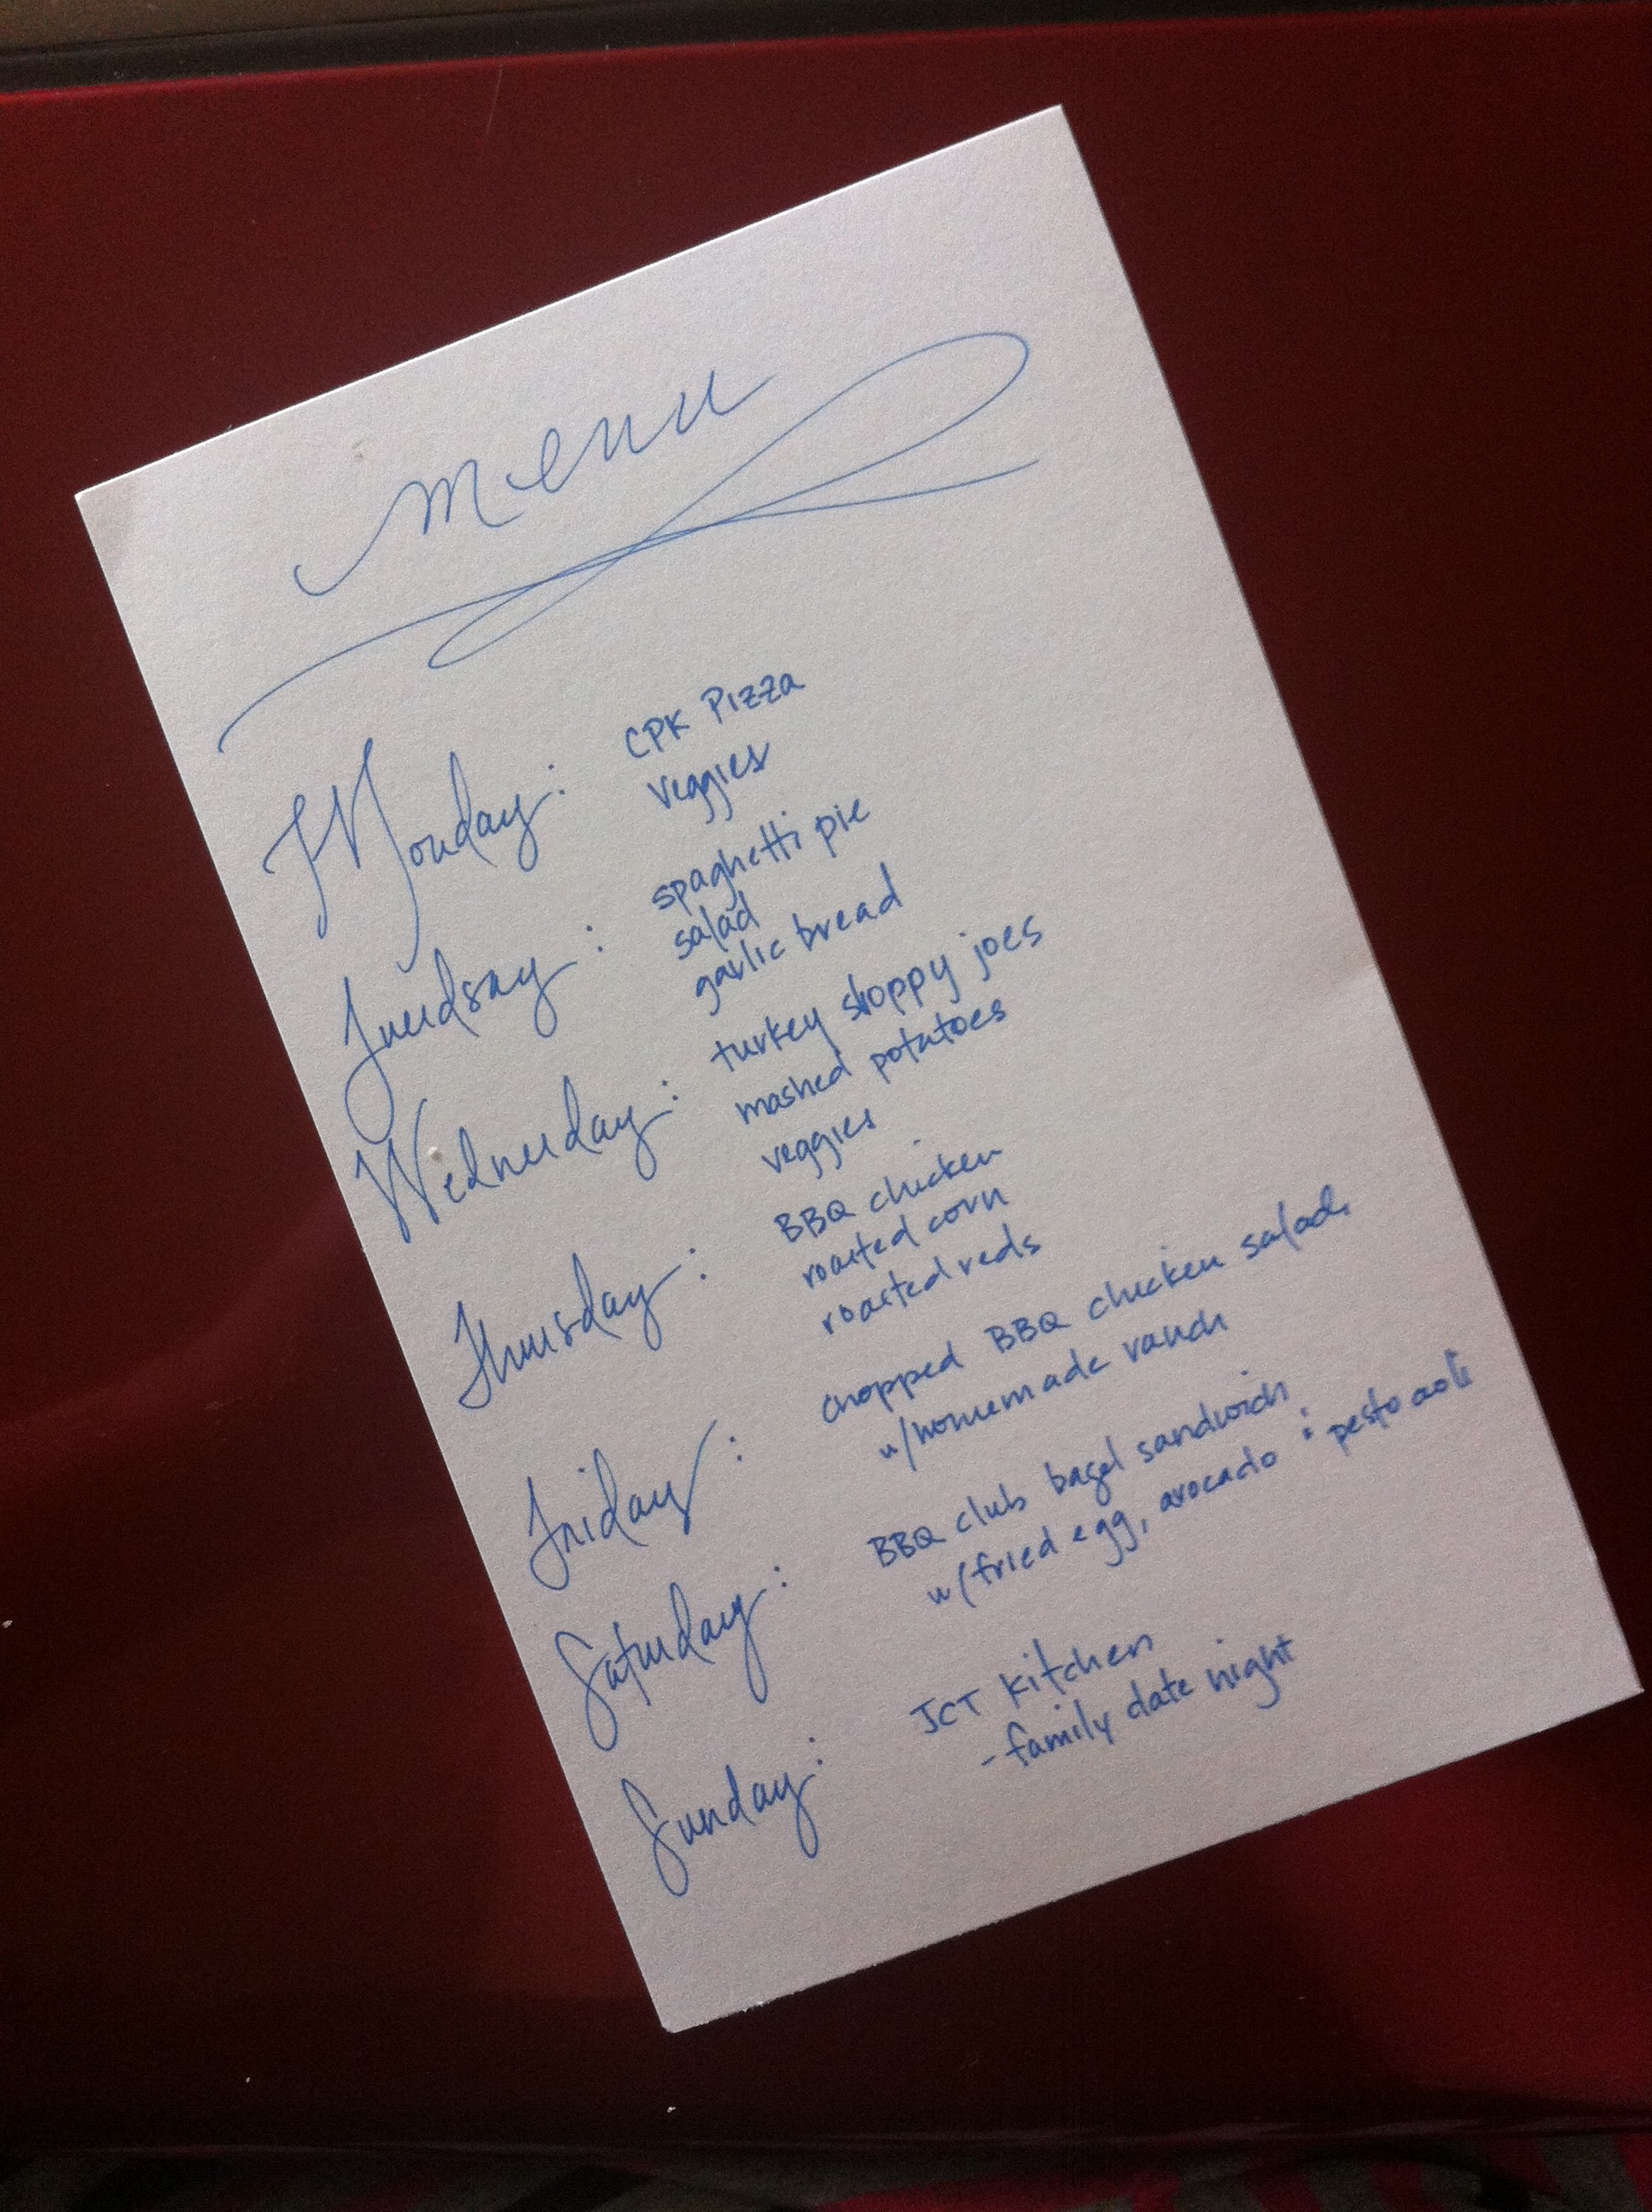 menu
Monday: CPK Pizza
veggies
Tuedsay: spaghetti pie
salad
garlic bread
Wednesday: turkey sloppy joes
mashed potatoes
veggies
Thursday: BBQ chicken
roasted corn
roasted reds
Friday: chopped BBQ chicken salad
w/homemade ranch
Saturday: BBQ club bagel sandwich
w/fried egg, avocado & pesto aoli
Sunday: JCT Kitchen
-family date night